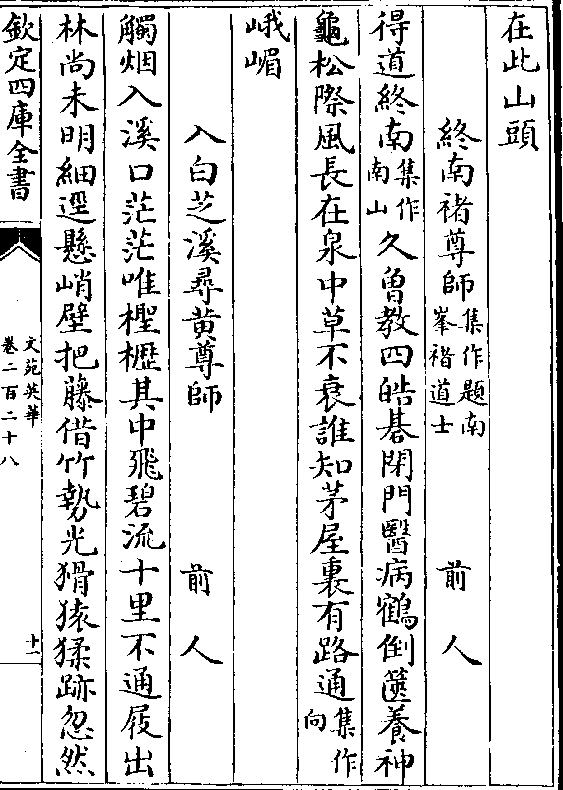 在此山頭
終南褚尊師集作題南峯褚道士　前人
得道終南集作南山久曾教四皓碁閉門醫病鶴倒篋養神
龜松際風長在泉中草不衰誰知茅屋裏有路通集作向
峨嵋
入白芝溪尋黄尊師　前人
觸烟入溪口茫茫唯檉櫪其中飛碧流十里不通屐出
林尚未明細逕懸峭壁把藤借竹勢光猾猿猱跡忽然
欽定四庫全書
文苑英華
卷二百二十八
十一